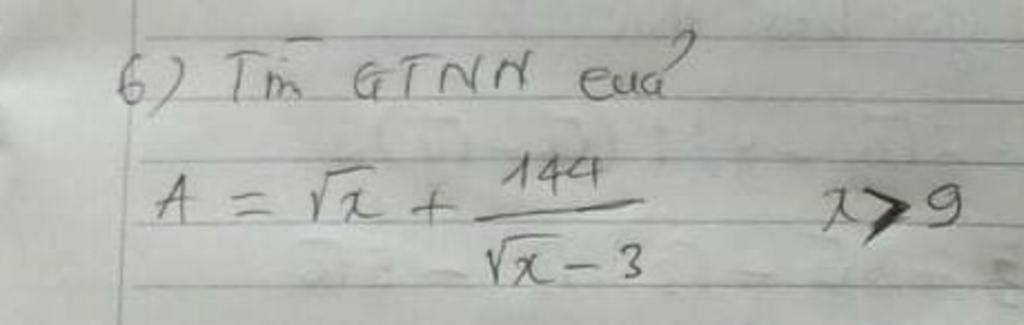 6) Tìm GTNN của
A = √x + 144/(√x - 3) x > 9